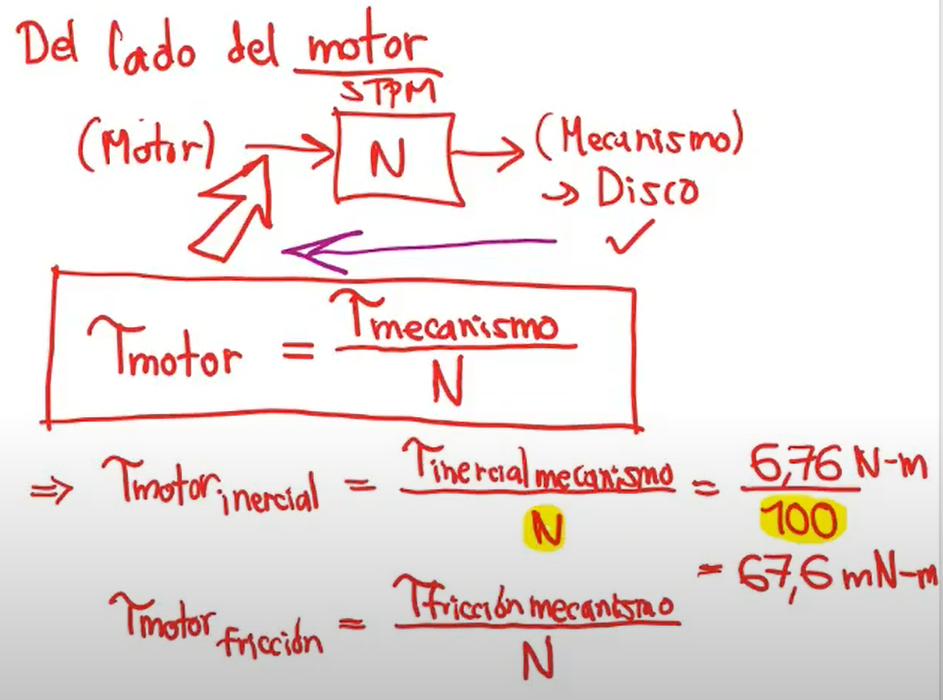 Del lado del motor
STPM
(Motor) → N → (Mecanismo)
→ Disco
✓
τmotor = τmecanismo / N
⇒ τmotor inercial = τinercial mecanismo / N = 6,76 N-m / 100
= 67,6 mN-m
τmotor fricción = τfricción mecanismo / N